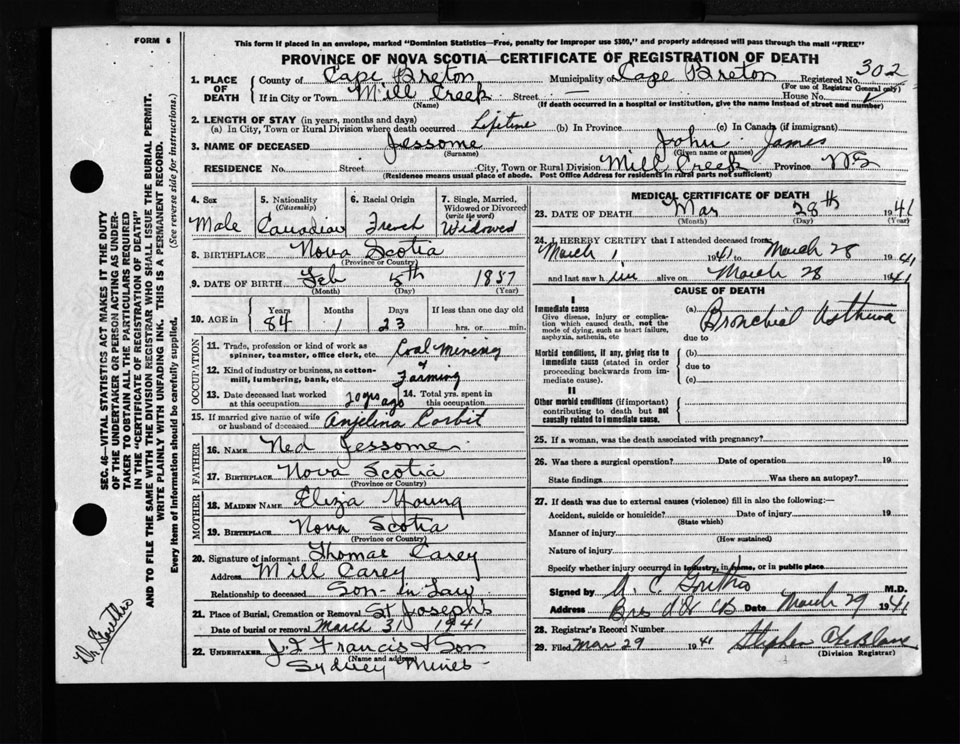 FORM 6
This form if placed in an envelope, marked "Dominion Statistics—Free, penalty for improper use $300," and properly addressed will pass through the mail "FREE"
PROVINCE OF NOVA SCOTIA—CERTIFICATE OF REGISTRATION OF DEATH
1. PLACE OF DEATH County of Cape Breton Municipality of Cape Breton Registered No. 302
(For use of Registrar General only)
If in City or Town Mill Creek Street — House No.
(Name) (If death occurred in a hospital or institution, give the name instead of street and number)
2. LENGTH OF STAY (in years, months and days)
(a) In City, Town or Rural Division where death occurred Lifetime (b) In Province (c) In Canada (if immigrant)
3. NAME OF DECEASED Jessome John James
(Surname) (Given name or names)
RESIDENCE No. Street City, Town or Rural Division Mill Creek Province NS
(Residence means usual place of abode. Post Office Address for residents in rural parts not sufficient)
4. Sex Male
5. Nationality (Citizenship) Canadian
6. Racial Origin French
7. Single, Married, Widowed or Divorced (write the word) Widowed
8. BIRTHPLACE Nova Scotia
(Province or Country)
9. DATE OF BIRTH Feb 5th 1857
(Month) (Day) (Year)
10. AGE in Years 84 Months 1 Days 23 If less than one day old hrs. or min.
OCCUPATION
11. Trade, profession or kind of work as spinner, teamster, office clerk, etc. Coal Mining
12. Kind of industry or business, as cotton-mill, lumbering, bank, etc. & Farming
13. Date deceased last worked at this occupation 20 yrs ago
14. Total yrs. spent in this occupation
15. If married give name of wife or husband of deceased Anjelina Corbit
FATHER
16. NAME Ned Jessome
17. BIRTHPLACE Nova Scotia
(Province or Country)
MOTHER
18. MAIDEN NAME Eliza Young
19. BIRTHPLACE Nova Scotia
(Province or Country)
20. Signature of informant Thomas Carey
Address Mill Carey
Relationship to deceased Son-in-Law
21. Place of Burial, Cremation or Removal St Josephs
Date of burial or removal March 31 1941
22. UNDERTAKER J.J Francis & Son
(Name and address)
Sydney Mines
MEDICAL CERTIFICATE OF DEATH
23. DATE OF DEATH Mar 28th 1941
(Month) (Day)
24. I HEREBY CERTIFY that I attended deceased from
March 1 1941 to March 28 1941
and last saw him alive on March 28 1941
CAUSE OF DEATH
I
Immediate cause
Give disease, injury or complication which caused death, not the mode of dying, such as heart failure, asphyxia, asthenia, etc
(a) Bronchial Asthma
due to
Morbid conditions, If any, giving rise to immediate cause (stated in order proceeding backwards from immediate cause).
(b)
due to
(c)
II
Other morbid conditions (if important) contributing to death but not causally related to immediate cause.
25. If a woman, was the death associated with pregnancy?
26. Was there a surgical operation? Date of operation 19
State findings Was there an autopsy?
27. If death was due to external causes (violence) fill in also the following:—
Accident, suicide or homicide? Date of injury 19
(State which)
Manner of injury
(How sustained)
Nature of injury
Specify whether injury occurred in industry, in home, or in public place
Signed by M.D.
Address Date March 29 1941
28. Registrar's Record Number
29. Filed Mar 29 1941 Stephen
(Division Registrar)
SEC. 46—VITAL STATISTICS ACT MAKES IT THE DUTY
OF THE UNDERTAKER OR PERSON ACTING AS UNDER-
TAKER TO OBTAIN ALL THE PARTICULARS REQUIRED
IN THE "CERTIFICATE OF REGISTRATION OF DEATH"
AND TO FILE THE SAME WITH THE DIVISION REGISTRAR WHO SHALL ISSUE THE BURIAL PERMIT.
WRITE PLAINLY WITH UNFADING INK. THIS IS A PERMANENT RECORD.
Every item of information should be carefully supplied. (See reverse side for instructions.)